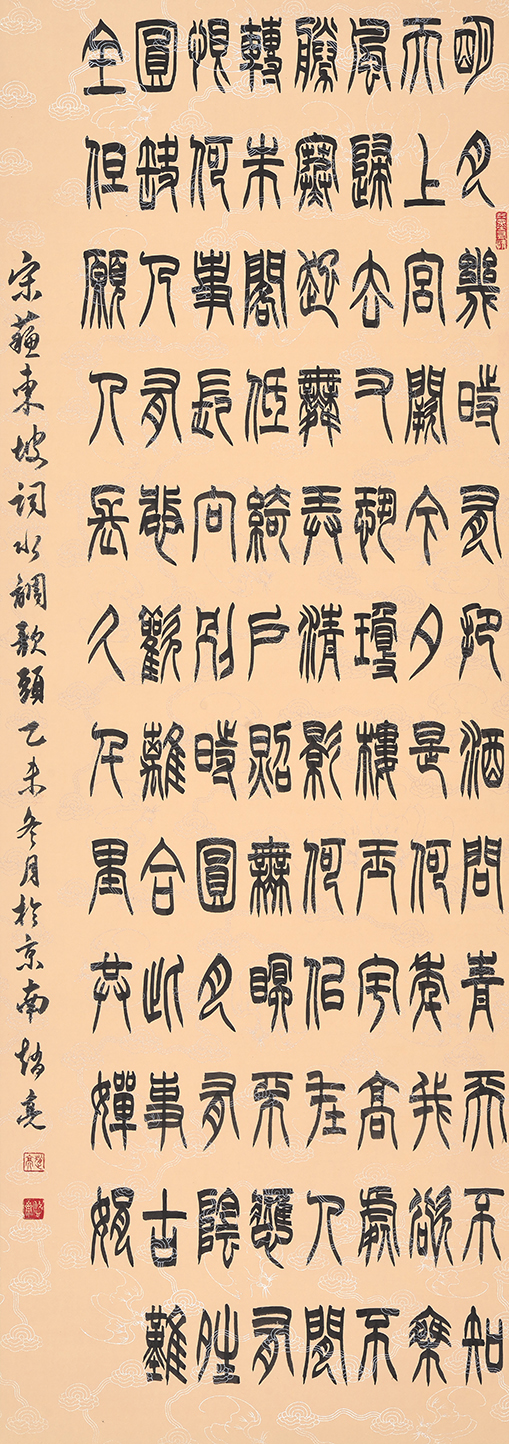 明月幾時有把酒問青天不知
天上宮闕今夕是何年我欲乘
風歸去又恐瓊樓玉宇高處不
勝寒起舞弄清影何似在人間
轉朱閣低綺戶照無眠不應有
恨何事長向別時圓月有陰晴
圓缺人有悲歡離合此事古難
全但願人長久千里共嬋娟
宋蘇東坡詞水調歌頭乙未冬月於京南趙